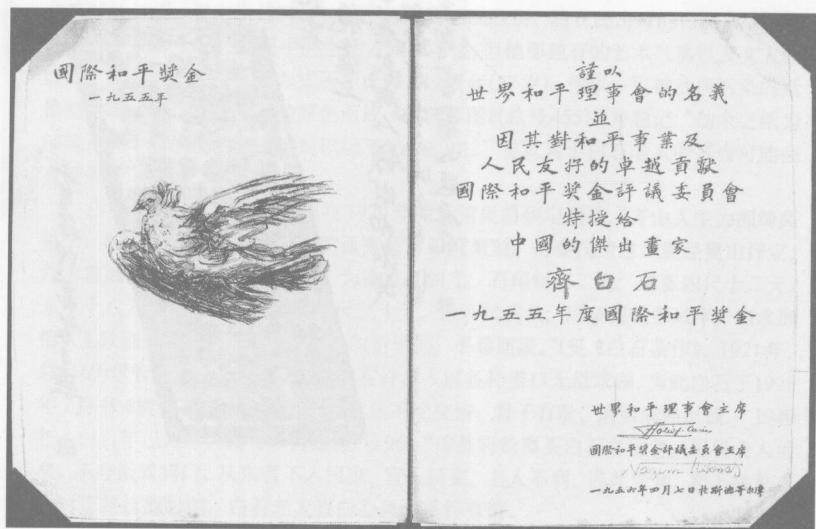 國際和平獎金
一九五五年
謹以
世界和平理事會的名義
並
因其對和平事業及
人民友好的卓越貢獻
國際和平奬金評議委員會
特授給
中國的傑出畫家
齊白石
一九五五年度國際和平奬金
世界和平理事會主席
國際和平奬金評議委員會主席
一九五六年四月七日於斯德哥爾摩